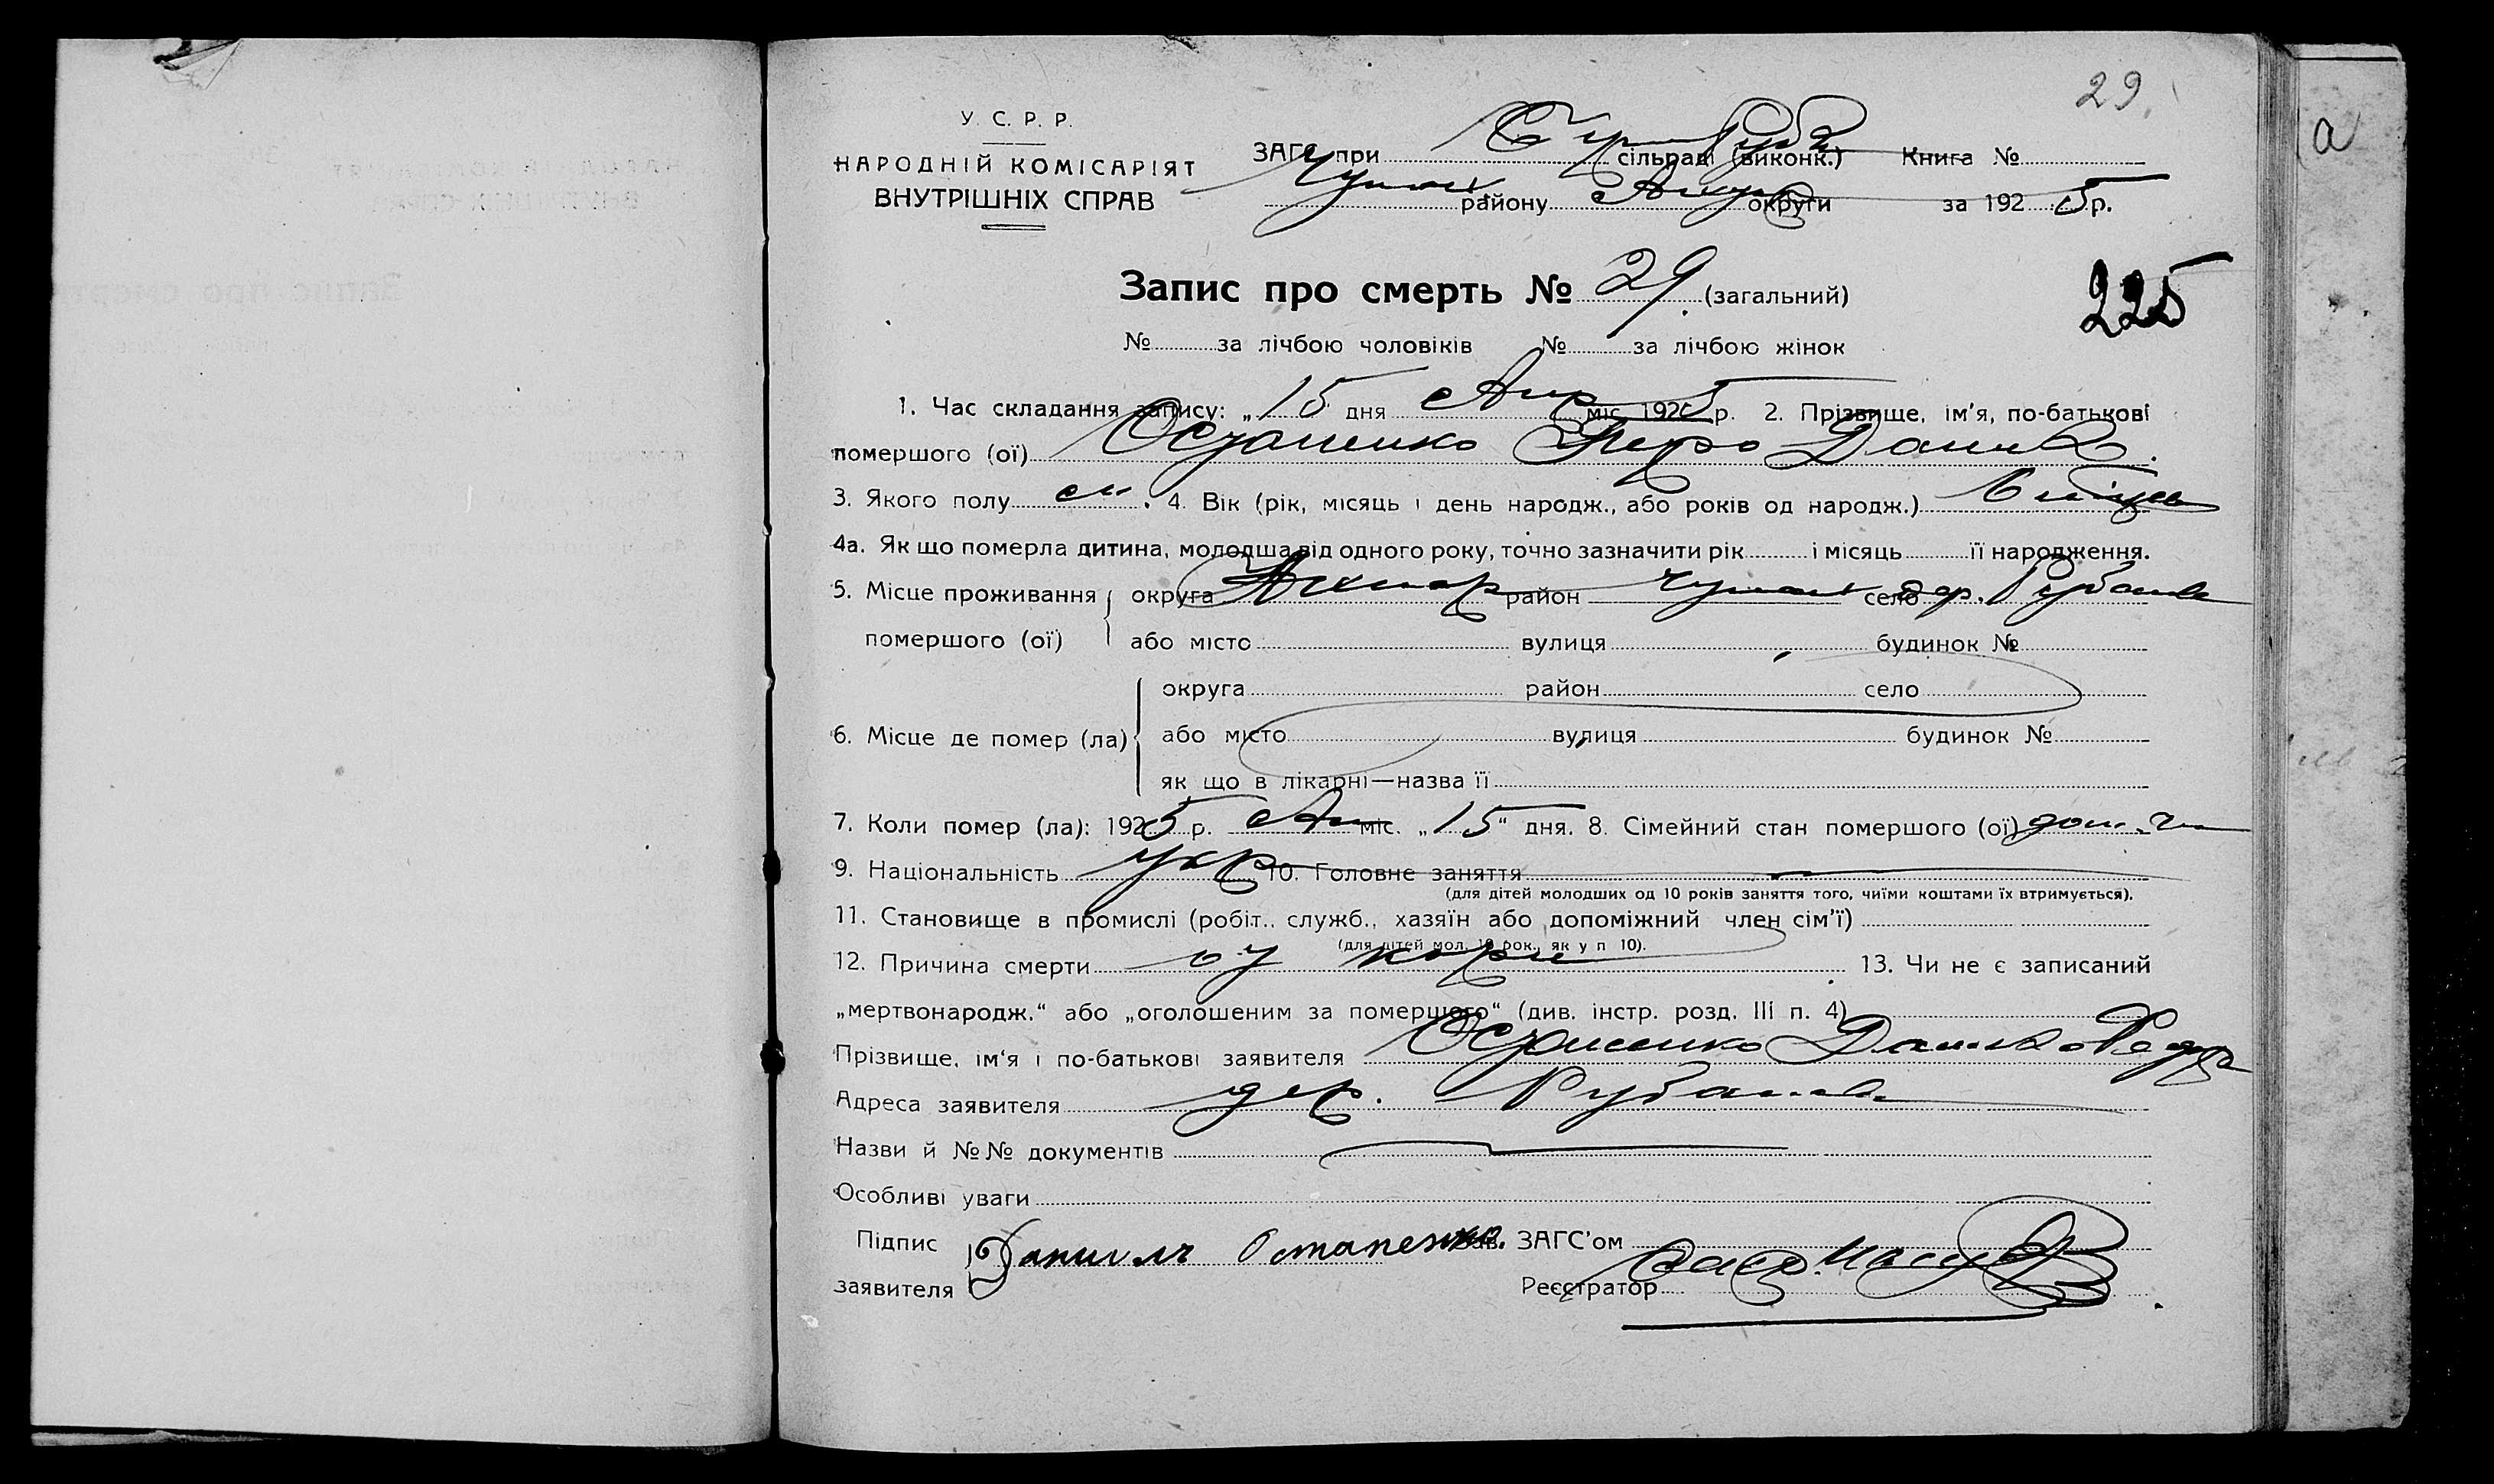 29.
а
У. С. Р. Р.
НАРОДНІЙ КОМІСАРІЯТ
ВНУТРІШНІХ СПРАВ
ЗАГС при сільраді (виконк.) Книга №
району округи за 1925 р.
Запис про смерть № 29. (загальний)
225
№ за лічбою чоловіків № за лічбою жінок
1. Час складання запису: „15 дня Апр міс. 1925 р. 2. Прізвище, ім'я, по-батькові
помершого (ої) Остапенко Петро Данил.
3. Якого полу м. 4. Вік (рік, місяць і день народж., або років од народж.)
4а. Як що померла дитина, молодша від одного року, точно зазначити рік і місяць її народження.
5. Місце проживання округа район село дер.
помершого (ої) або місто вулиця будинок №
округа район село
6. Місце де помер (ла) або місто вулиця будинок №
як що в лікарні—назва її
7. Коли помер (ла): 1925 р. Ап міс. „15“ дня. 8. Сімейний стан помершого (ої)
9. Національність укр 10. Головне заняття
(для дітей молодших од 10 років заняття того, чиїми коштами їх втримується).
11. Становище в промислі (робіт., служб., хазяїн або допоміжний член сім'ї)
(для дітей мол. 10 рок. як у п 10).
12. Причина смерти от кори 13. Чи не є записаний
„мертвонародж.“ або „оголошеним за помершого“ (див. інстр. розд. III п. 4)
Прізвище, ім'я і по-батькові заявителя Остапенко Данил
Адреса заявителя дер.
Назви й №№ документів
Особливі уваги
Підпис Даниилъ Остапенко. Зав. ЗАГС'ом
заявителя Реєстратор